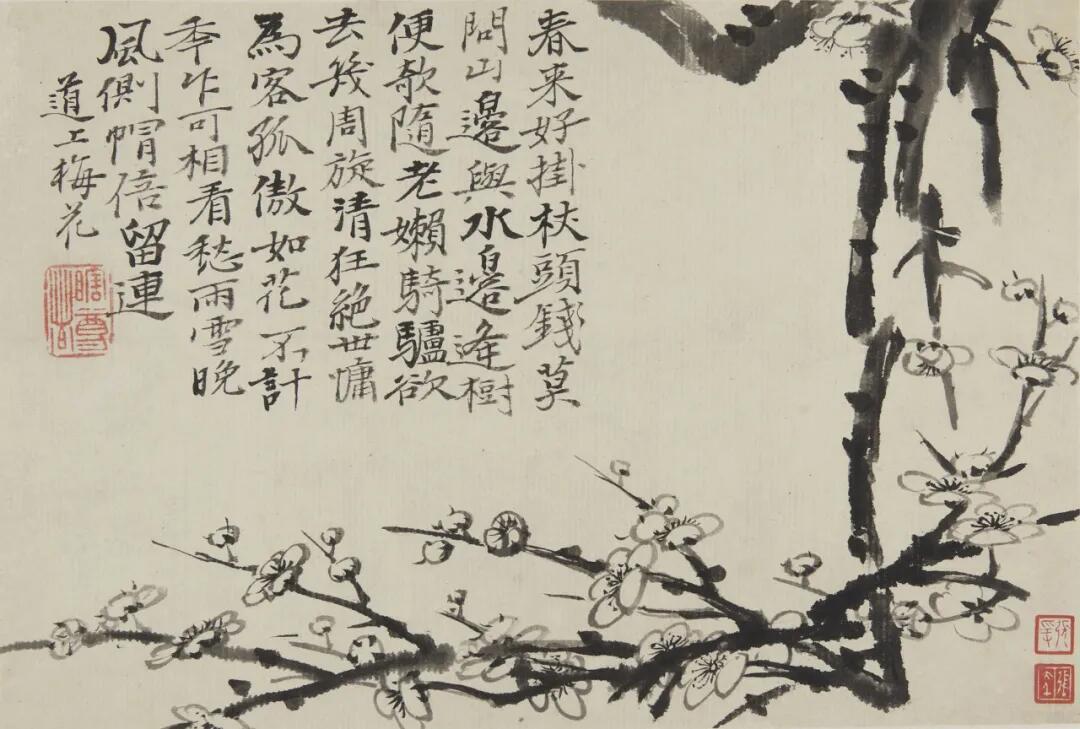 春来好掛杖頭錢莫
問山邊與水邊逢樹
便欹隨老嬾騎驢欲
去幾周旋清狂絕世慵
為客孤傲如花不計
年乍可相看愁雨雪晚
風側帽倍留連
道上梅花
瞎尊者